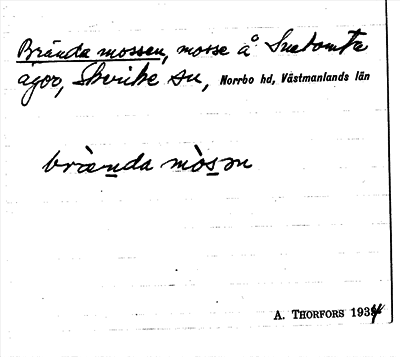 Brända mossen, mosse å Svabomta
ägor, Skerike sn, Norrbo hd, Västmanlands län
brànda mòsən
A. THORFORS 1934